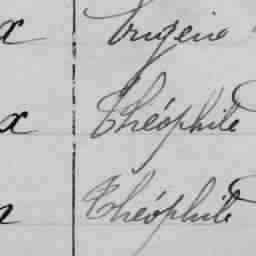 x Eugénie
x Théophile
Théophile